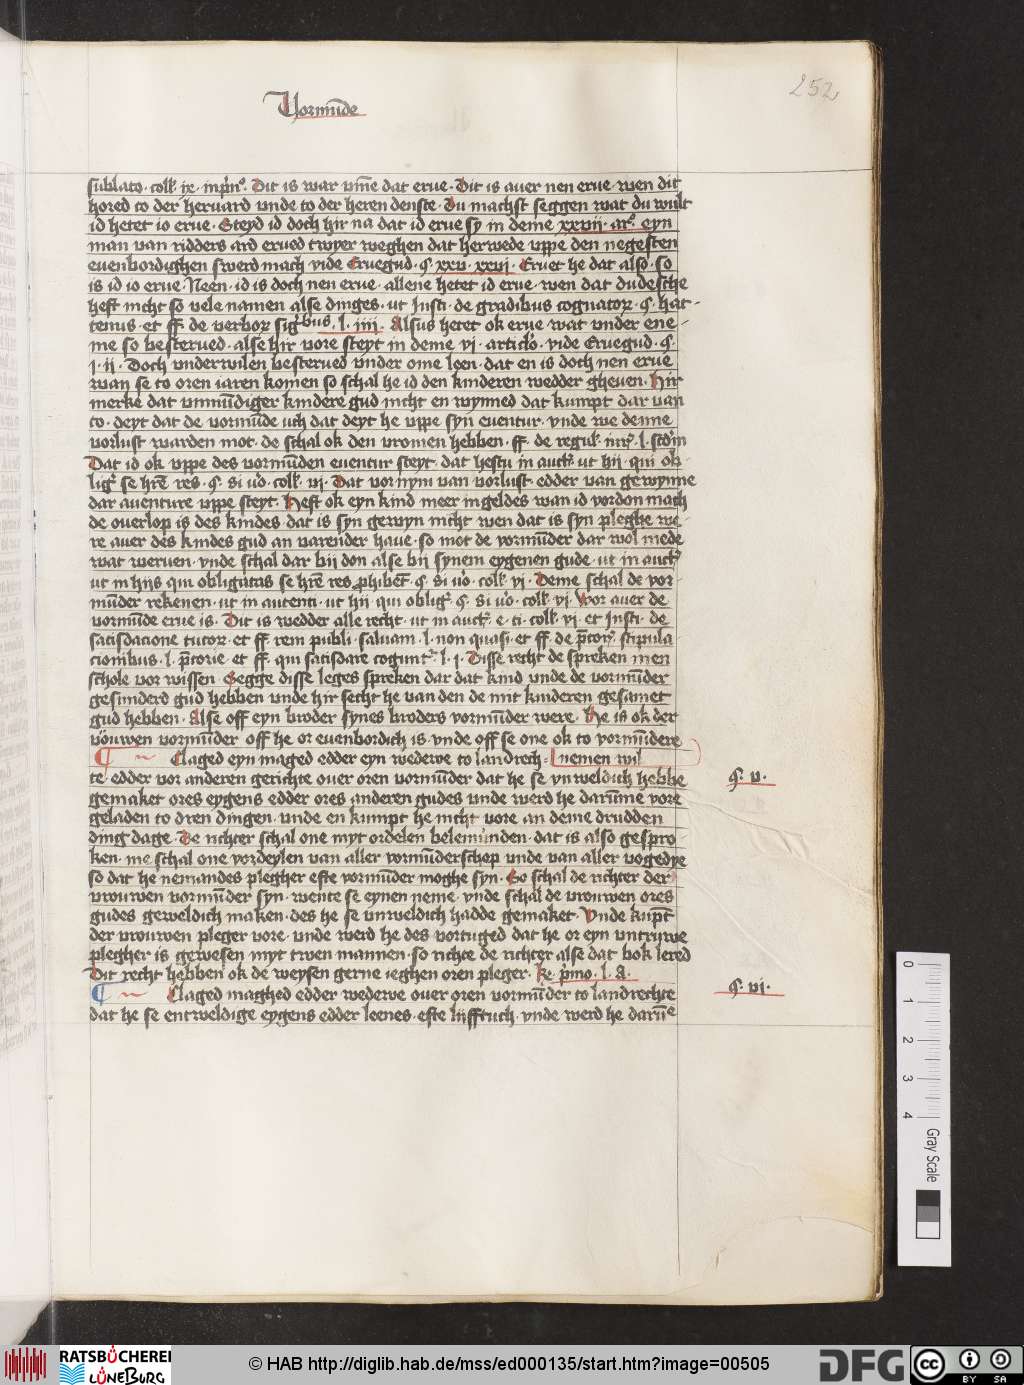 Vormu̅de
252
sublato · coll · ix · inpn̅ · Dit is war vm̅e dat erue · Dit is auer nen erue · wen dit
hored to der heruard vnde to der heren denste · Du machst seggen wat du wult
id hetet io erue · Steyd id doch hir na dat id erue sy in deme xxvij · ar · eyn
man van ridders ard erued twyer weghen dat herwede vppe den negesten
euenbordighen swerd mach vide Eruegud · §. xxv · xxvi · Eruet he dat also · so
is id io erue Neen · id is doch nen erue · allene hetet id erue · wen dat dudesche
heft nicht so vele namen alse dinges · ut Insti · de gradibus cognator · §. hac-
tenus · et ff de verbor sigbus · l · iiij · Alsus hetet ok erue wat vnder ene-
me so besterued · alse hir vore steyt in deme vi · articlo · vide Eruegud · §.
i · ii · Doch vnderwilen besterued vnder ome leen · dat en is doch nen erue
wan se to oren iaren komen so schal he id den kinderen wedder gheuen · Hir
merke dat vnmu̅diger kindere gud nicht en wynned dat kumpt dar van
to · deyt dat de vormu̅de uch dat deyt he vppe syn euentur · vnde we denne
vorlust warden mot · de schal ok den vromen hebben · ff · de regul · iur · l · scdm
Dat id ok vppe des vormu̅den euentur steyt · dat hestu in auct · ut hij · qui ob-
lig se hre̅ res · §. si vo · coll · vi · Dat vornym van vorlust · edder van gewynne
dar auenture vppe steyt · Heft ok eyn kind meer ingeldes wan id vordon mach
de ouerlop is des kindes · dat is syn gewyn nicht wen dat is syn pleghe we-
re auer des kindes gud an varender haue · so mot de vormu̅der dar wol mede
wat weruen · vnde schal dar bij don alse bij synem eygenen gude · ut in auct
ut in hijs qui obligatas se hre̅ res phibet · §. si vo · coll · vi · Deme schal de vor-
mu̅der rekenen · ut in autenti · ut hij · qui oblig · §. Si vo · coll · vi · Wor auer de
vormu̅de erue is · Dit is wedder alle recht · ut in auct · e · ti · coll · vi · et Insti · de
satisdacione tutor · et ff · rem publi · saluam · l · non quasi · et ff · de p̅tor · stipula
cionibus · l · p̅torie · et ff · qui satisdare cogunt · l · i · Disse recht de spreken men
schole vor wissen · Segge disse leges spreken dar dat kind vnde de vormu̅der
gesunderd gud hebben vnde hir secht he van den de mit kinderen gesamet
gud hebben · Alse off eyn broder synes broders vormu̅der were · He is ok der
vouwen vormu̅der off he or euenbordich is · vnde off se one ok to vormu̅dere
Claged eyn maged edder eyn wedewe to landrech- nemen wil
te · edder vor anderen gerichte ouer oren vormu̅der dat he se vnweldich hebbe
§. v ·
gemaket ores eygens edder ores anderen gudes vnde werd he daru̅me vore
geladen to dren dingen · vnde en kumpt he nicht vore an deme drudden
ding dage · De richter schal one myt ordelen belemunden · dat is also gespro
ken · me schal one vordeylen van aller vormu̅derschep vnde van aller vogedye
so dat he nemandes plegher efte vormu̅der moghe syn · So schal de richter der
vrouwen vormu̅der syn · wente se eynen neme · vnde schal de vrouwen ores
gudes geweldich maken · des he se vnweldich hadde gemaket · Vnde ku̅pt
der vrouwen pleger vore · vnde werd he des vortuged dat he or eyn vntruwe
plegher is gewesen myt twen mannen · so richte de richter alse dat bok lered
Dit recht hebben ok de weysen gerne ieghen oren pleger · ke · pimo · l · a ·
Claged maghed edder wedewe ouer oren vormu̅der to landrechte
§. vi ·
dat he se entweldige eygens edder leenes · efte lijfftuch · vnde werd he daru̅e
0
1
2
3
4
Gray Scale
RATSBÜCHEREI
LÜNEBURG
© HAB http://diglib.hab.de/mss/ed000135/start.htm?image=00505
DFG
cc
BY SA